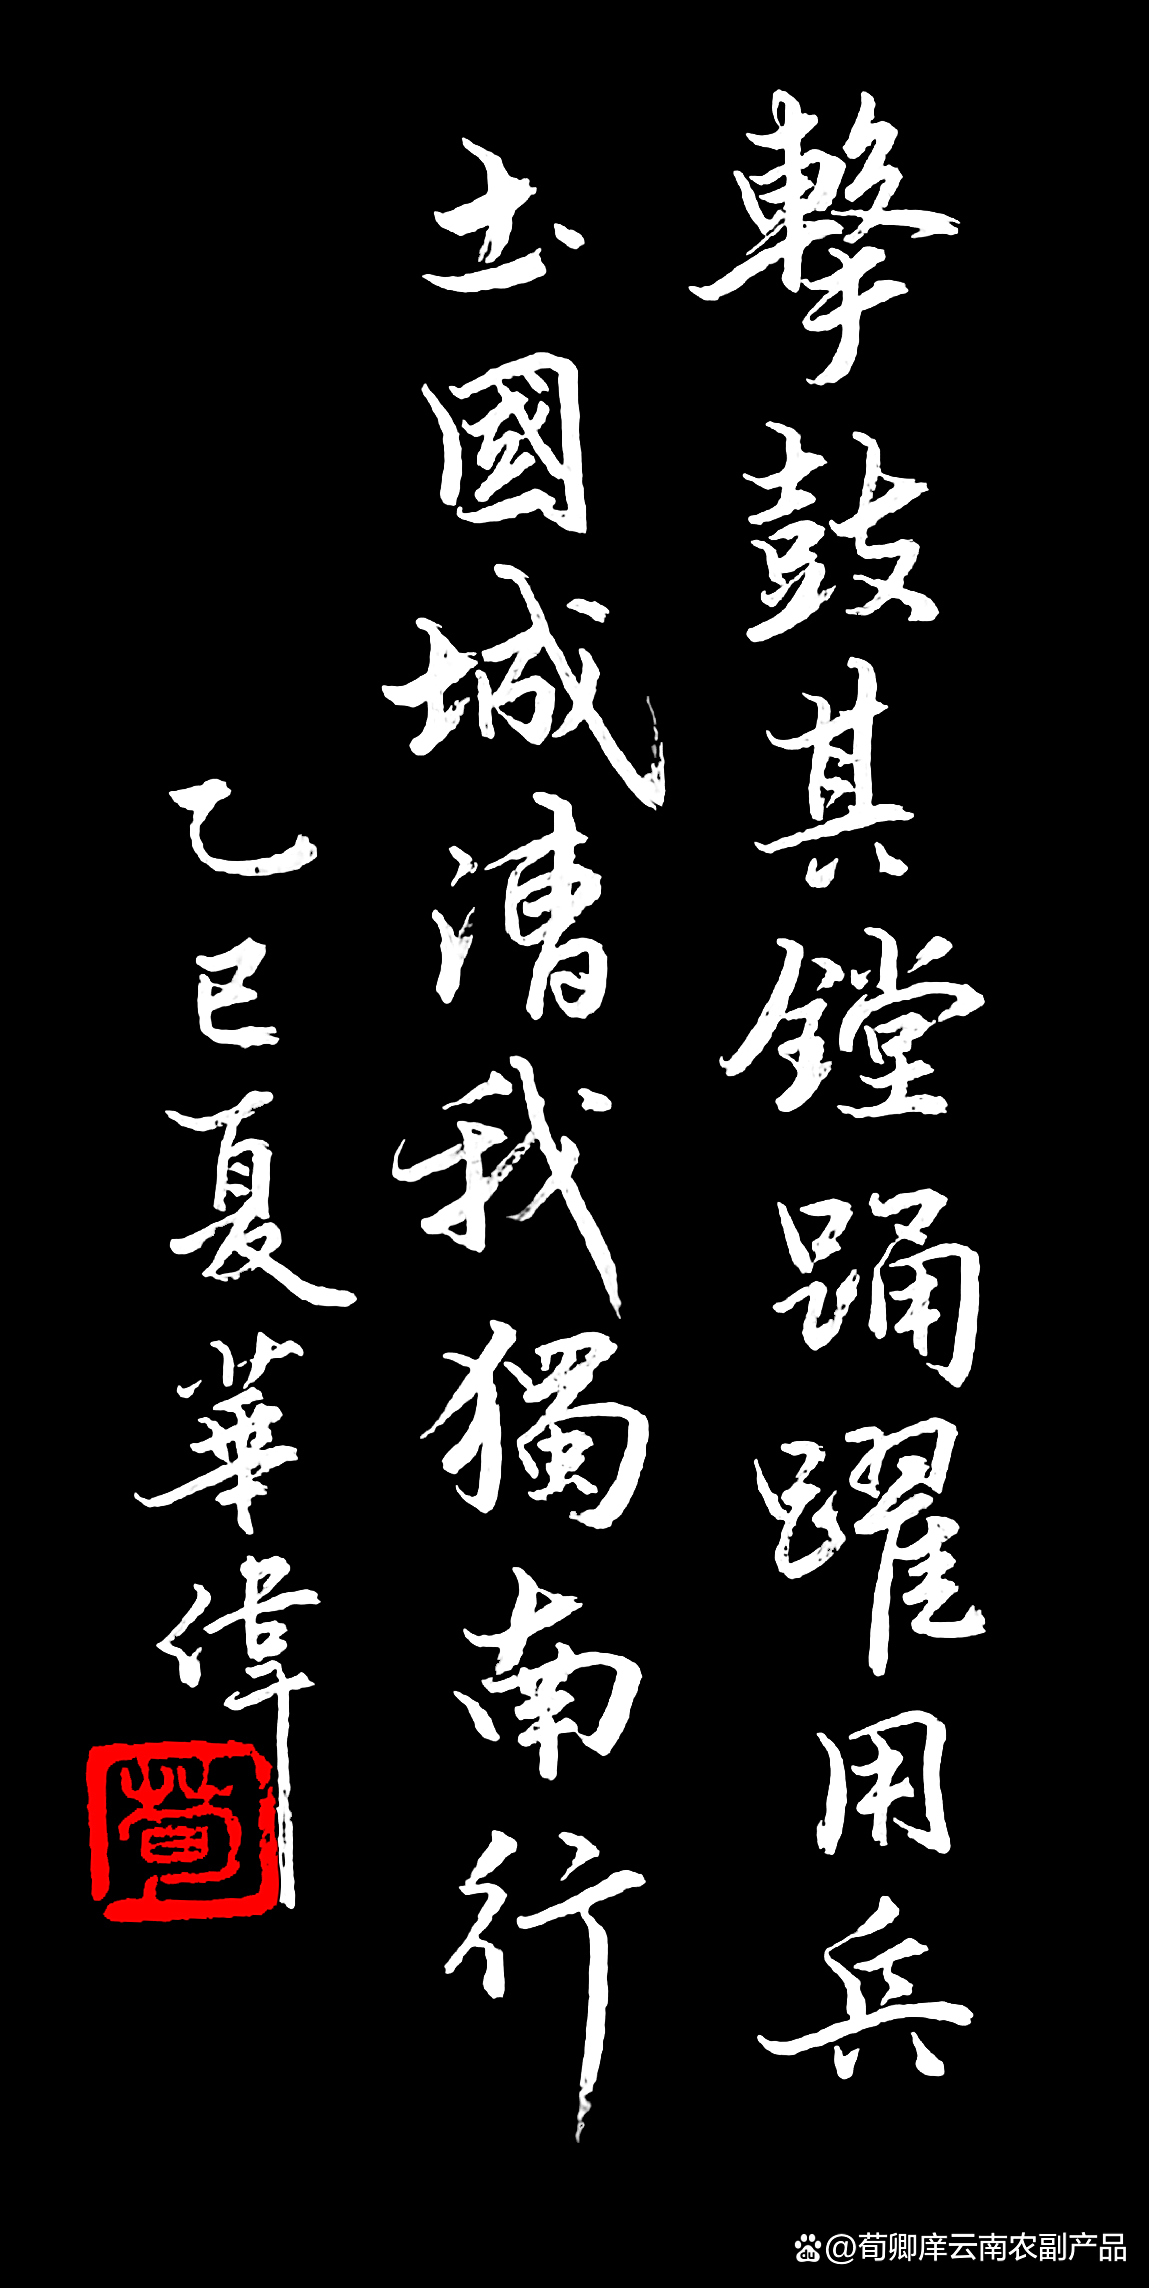 擊鼓其鏜踊躍用兵
土國城漕我獨南行
乙巳夏華偉
荀
@荀卿庠云南农副产品